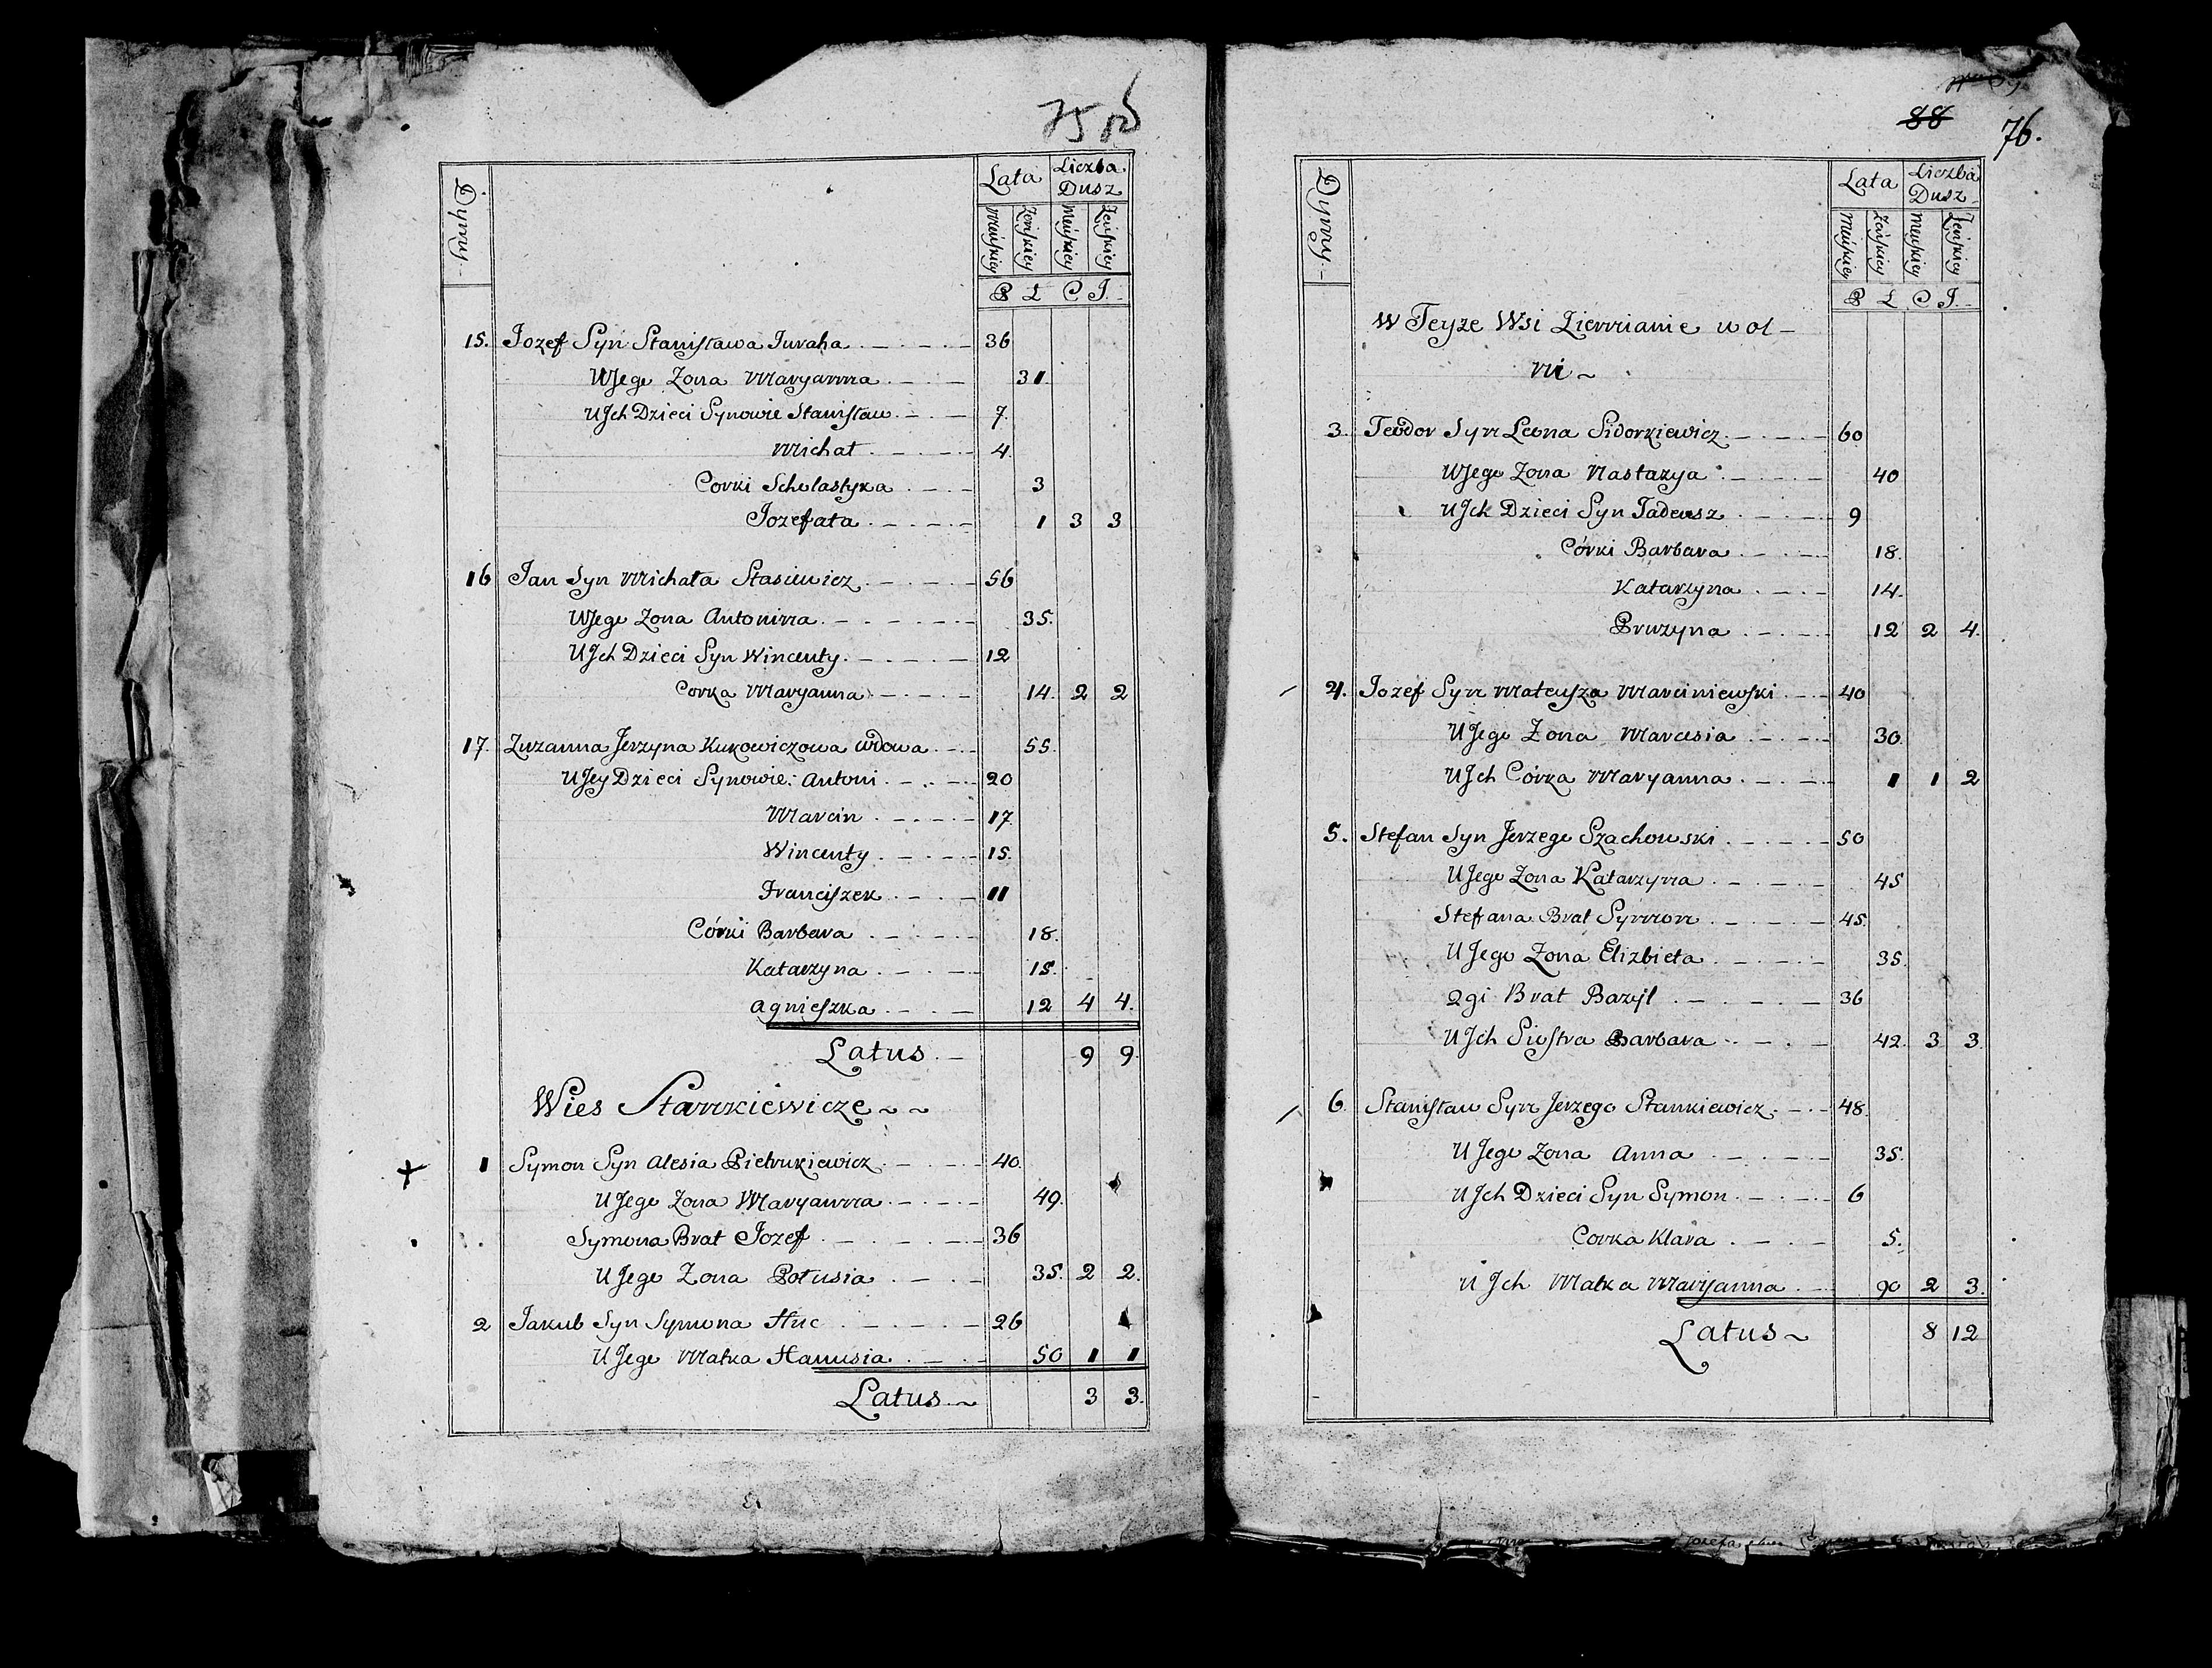 75
Dymy.
Lata
Liczba Dusz
Męńskiey
Żeńskiey
Męńskiey
Żeńskiey
P Ł C I.
15. Jozef Syn Stanisława Juraha 36
U Jego Zona Maryanna 31.
U Jch Dzieci Synowie Stanisław 7.
Michał 4.
Corki Scholastyka 3
Jozefata 1 3 3
16 Jan Syn Michała Stasiewicz 56
U Jego Zona Antonina 35.
U Jch Dzieci Syn Wincenty 12
Corka Maryanna 14. 2 2
17. Zuzanna Jerzyna Kukowiczowa wdowa 55.
U Jey Dzieci Synowie: Antoni 20
Marcin 17.
Wincenty 15.
Franciszek 11
Córki Barbara 18.
Katarzyna 15.
Agnieszka 12 4 4.
Latus 9 9.
Wies Stankiewicze
1 Symon Syn Alesia Pietrukiewicz 40.
U Jego Zona Maryanna 49.
Symona Brat Jozef 36
U Jego Zona Połusia 35. 2 2.
2 Jakub Syn Symona Huc 26
U Jego Matka Hanusia 50 1 1
Latus 3 3.
88
76.
Dymy.
Lata
Liczba Dusz
Męńskiey
Żeńskiey
Męńskiey
Żeńskiey
P Ł C I.
W Teyze Wsi Ziemianie wol-
ni
3. Teodor Syn Leona Sidorkiewicz 60.
U Jego Zona Nastazya 40
U Jch Dzieci Syn Tadeusz 9
Córki Barbara 18.
Katarzyna 14.
Pruzyna 12 2 4.
4. Jozef Syn Mateusza Marciniewski 40
U Jego Zona Marcesia 30.
U Jch Córka Maryanna 1 1 2
5. Stefan Syn Jerzego Szachowski 50
U Jego Zona Katarzyna 45
Stefana Brat Symon 45.
U Jego Zona Elizbieta 35.
2gi Brat Bazyl 36
U Jch Siostra Barbara 42. 3 3.
6. Stanisław Syn Jerzego Stankiewicz 48.
U Jego Zona Anna 35.
U Jch Dzieci Syn Symon 6
Corka Klara 5.
U Jch Matka Maryanna 90 2 3.
Latus 8 12